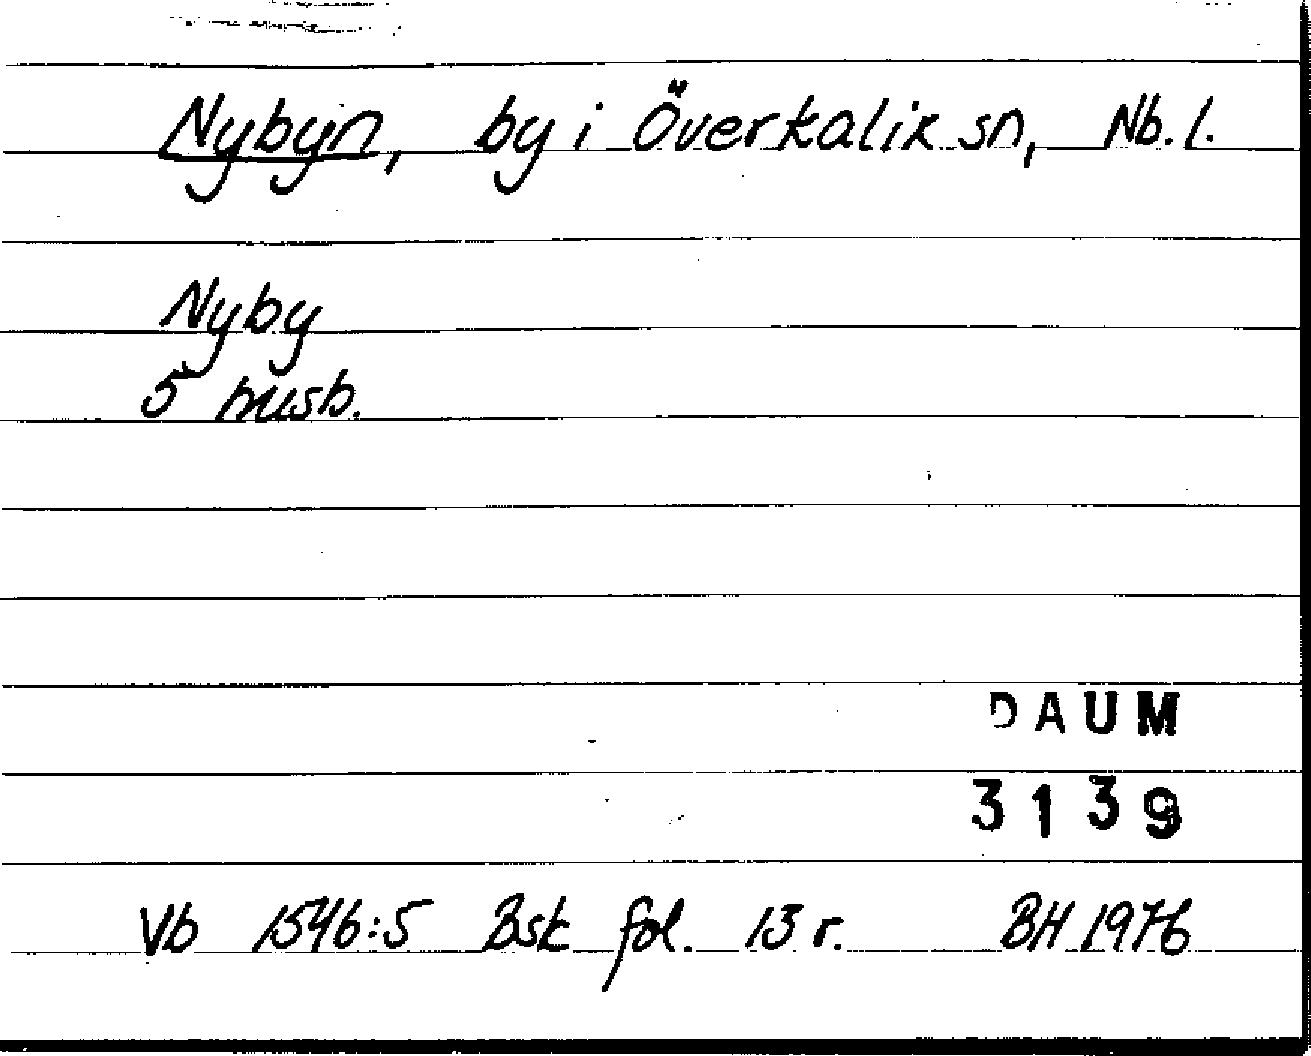 Nybyn, by i Överkalix sn, Nb. l.
Nyby
5 husb.
DAUM
3139
Vb 1546:5 Bsk fol. 13 r. BH 1976